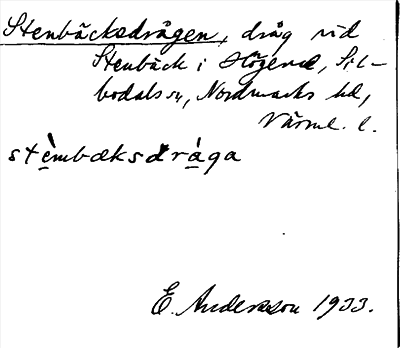 Stenbäcksdrågen, dråg vid
Stenbäck i Högerud, Sil-
bodals sn, Nordmarks hd,
Värml. l.
stèmbæksdråga
E. Andersson 1933.